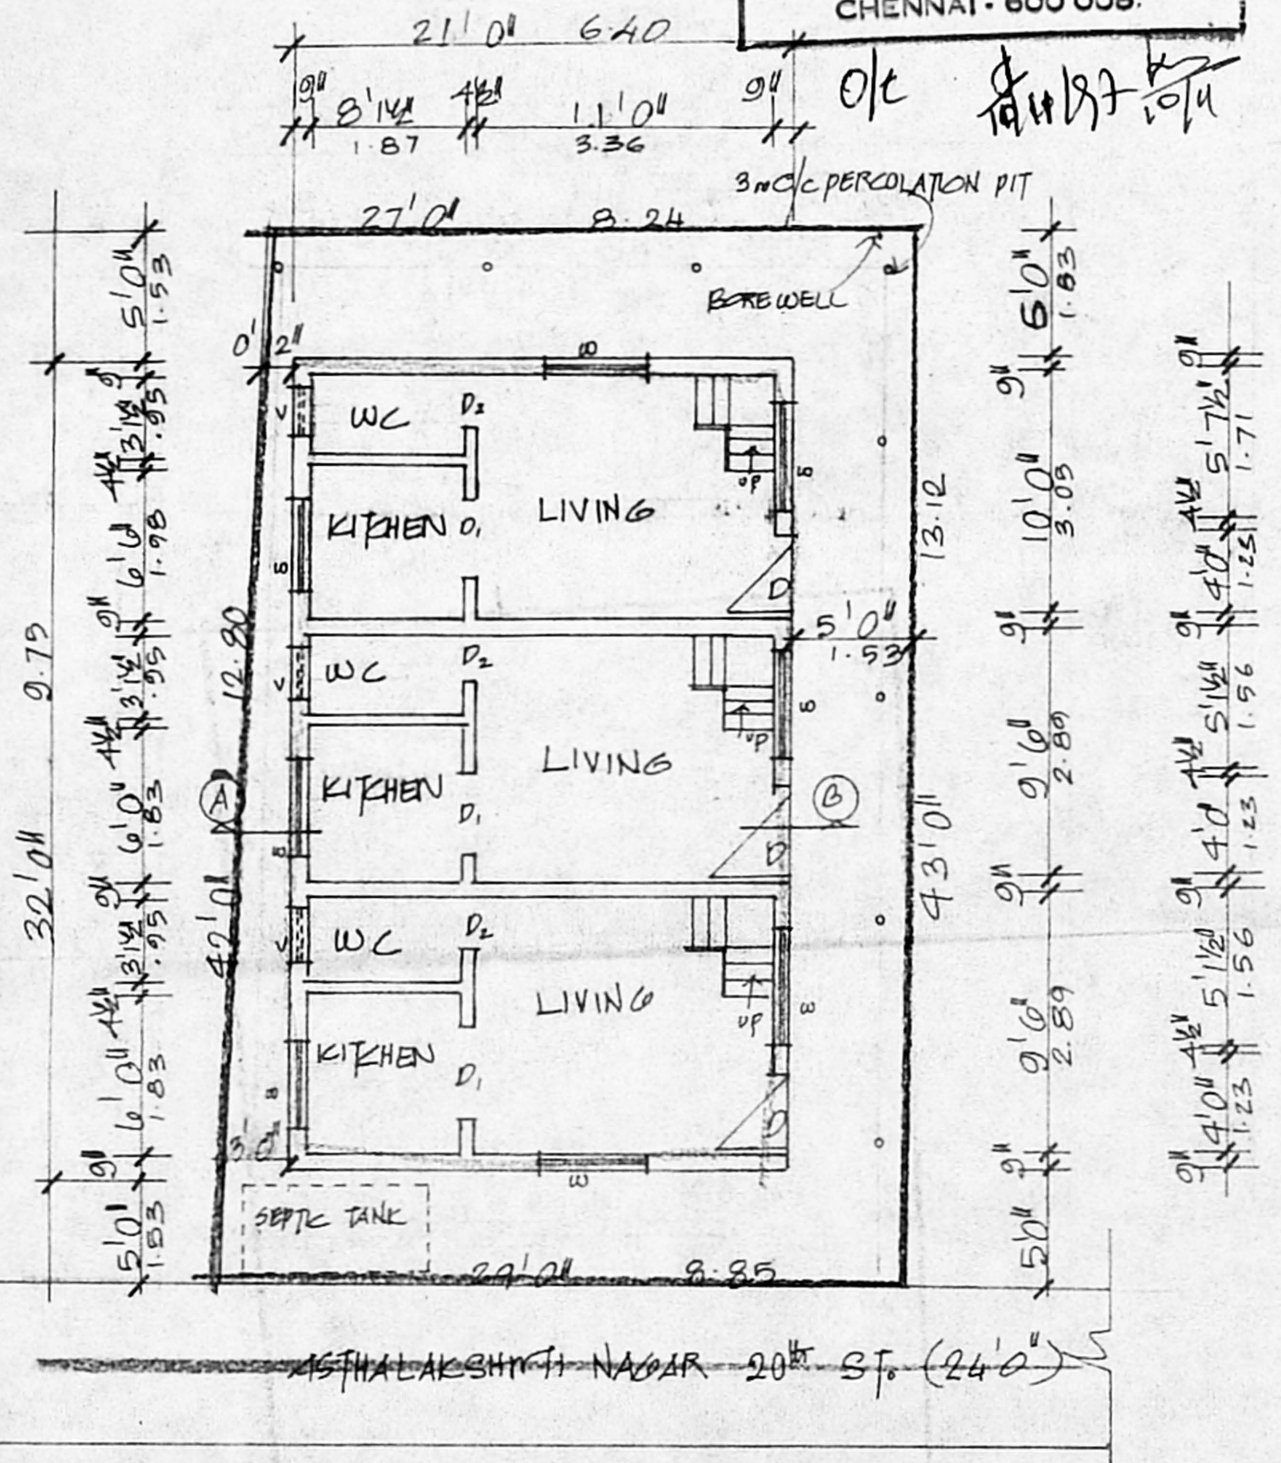 CHENNAI - 600 008.
21'0" 6.40
9" 8'1½" 4½" 11'0" 9"
1.87 3.36
O/c
3m C/C PERCOLATION PIT
27'0" 8.24
BOREWELL
5'0" 1.53
0' 2"
6'0" 1.83
9" 3'1½" .95
4½"
6'6" 1.98
9" 3'1½" .95
4½"
6'0" 1.83
9" 3'1½" .95
4½"
6'0" 1.83
9"
5'0" 1.53
9.75
32'0"
12.80
42'0"
WC D2
V
KITCHEN D1 LIVING
UP
D
WC D2
V
KITCHEN D1 LIVING
UP
D
WC D2
V
KITCHEN D1 LIVING
UP
D
A
B
5'0"
1.53
13.12
43'0"
9"
10'0" 3.05
9"
9'6" 2.89
9"
9'6" 2.89
9"
5'0"
9"
5'7½" 1.71
4½"
4'0" 1.23
9"
5'1½" 1.56
4½"
4'0" 1.23
9"
5'1½" 1.56
4½"
4'0" 1.23
9"
3'0"
SEPTIC TANK
29'0" 8.85
ASTHALAKSHMI NAGAR 20th ST. (24'0")